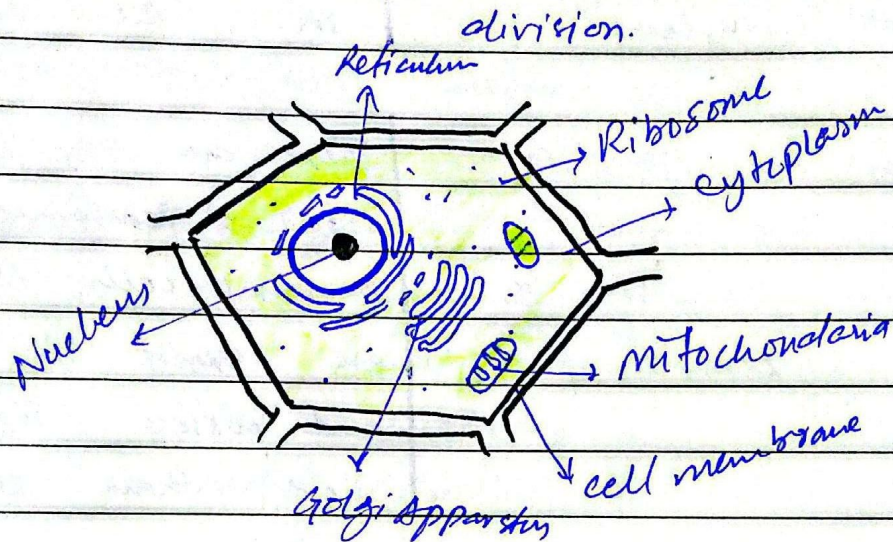 division.
Reticulum
Ribosome
Cytoplasm
Nucleus
Mitochondaria
Cell membrane
Golgi Apparatus